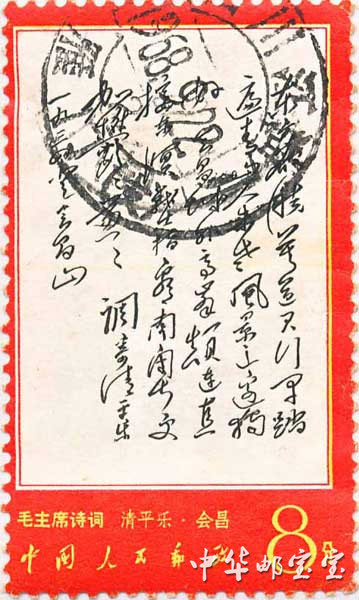 东方欲晓莫道君行早踏
遍青山人未老風景这边独
好会昌城外高峯颠連直
接东溟战士指看南粤更
加郁郁葱葱 調寄清平乐
一九三四年登会昌山
毛主席诗词 清平乐·会昌
中国人民邮政
8分
中华邮宝宝